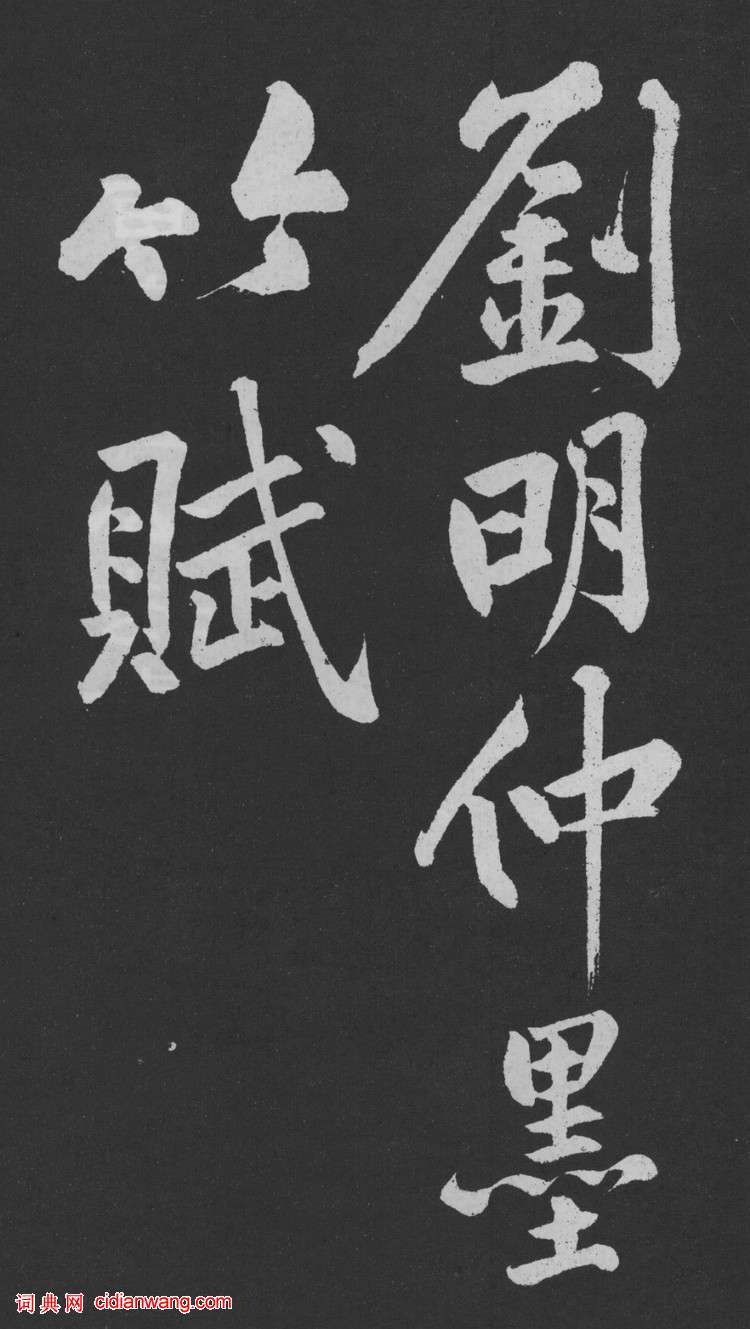 劉明仲墨
竹賦
词典网 cidianwang.com